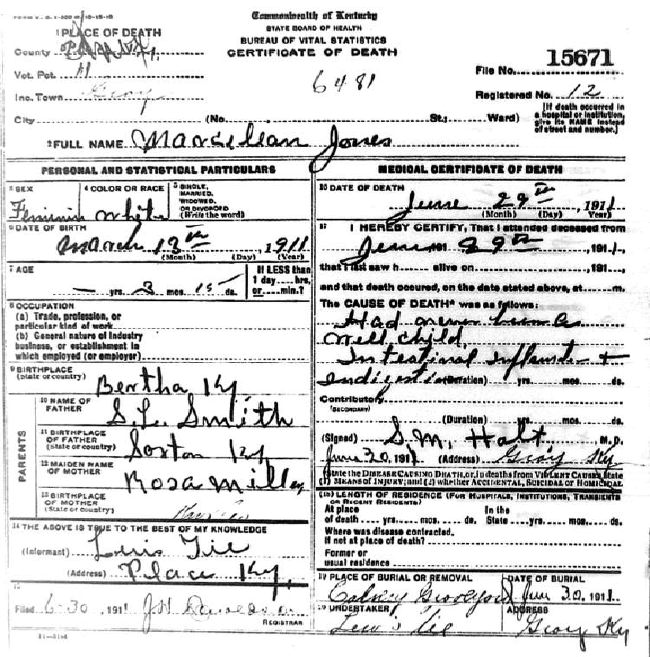 Commonwealth of Kentucky
STATE BOARD OF HEALTH
BUREAU OF VITAL STATISTICS
CERTIFICATE OF DEATH
1 PLACE OF DEATH
County
Vot. Pct.
Inc. Town
City (No. St.; Ward)
6481
File No. 15671
Registered No. 12
[If death occurred in a hospital or institution, give its NAME instead of street and number.]
2 FULL NAME Jones
PERSONAL AND STATISTICAL PARTICULARS
3 SEX
4 COLOR OR RACE White
5 SINGLE, MARRIED, WIDOWED, OR DIVORCED (Write the word)
6 DATE OF BIRTH
March 1911
(Month) (Day) (Year)
7 AGE
— yrs. 3 mos. 15 ds.
If LESS than 1 day ___ hrs. or ___ min.?
8 OCCUPATION
(a) Trade, profession, or particular kind of work
(b) General nature of industry business, or establishment in which employed (or employer)
9 BIRTHPLACE
(State or country)
Bertha Ky
PARENTS
10 NAME OF FATHER S. L. Smith
11 BIRTHPLACE OF FATHER (State or country) Ky
12 MAIDEN NAME OF MOTHER Rosa Miller
13 BIRTHPLACE OF MOTHER (State or country)
14 THE ABOVE IS TRUE TO THE BEST OF MY KNOWLEDGE
(Informant) Lewis
(Address) Place Ky,
15
Filed 6-30 1911
REGISTRAR
MEDICAL CERTIFICATE OF DEATH
16 DATE OF DEATH
June 29th 1911
(Month) (Day) (Year)
17 I HEREBY CERTIFY, That I attended deceased from
June 191 29th 1911,
that I last saw h___ alive on 1911,
and that death occured, on the date stated above, at ___ m.
The CAUSE OF DEATH* was as follows:
Had never been a
well child
Intestinal +
(Duration) yrs. mos. ds.
Contributory
(SECONDARY)
(Duration) yrs. mos. ds.
(Signed) S. M. Holt M.D.
June 30, 1911 (Address) Ky
*State the DISEASE CAUSING DEATH, or, in deaths from VIOLENT CAUSES, state (1) MEANS OF INJURY; and (2) whether ACCIDENTAL, SUICIDAL OR HOMICIDAL.
18 LENGTH OF RESIDENCE (FOR HOSPITALS, INSTITUTIONS, TRANSIENTS OR RECENT RESIDENTS)
At place of death yrs. mos. ds. In the State yrs. mos. ds.
Where was disease contracted, if not at place of death?
Former or usual residence
19 PLACE OF BURIAL OR REMOVAL
DATE OF BURIAL
June 30, 1911
20 UNDERTAKER
Lewis
ADDRESS
Ky